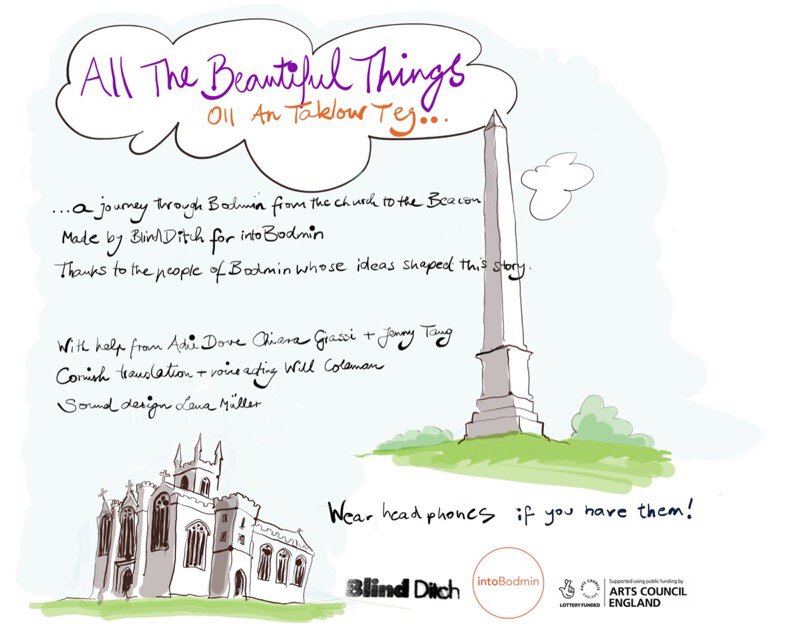 All The Beautiful Things
Oll An Taklow Teg...
...a journey through Bodmin from the church to the Beacon
Made by Blind Ditch for intoBodmin
Thanks to the people of Bodmin whose ideas shaped this story.
With help from Adie Dove Chiara Grassi + Jenny Tang
Cornish translation + voice acting Will Coleman
Sound design Lena Müller
Wear headphones if you have them!
Blind Ditch
intoBodmin
LOTTERY FUNDED
ARTS COUNCIL ENGLAND
Supported using public funding by
ARTS COUNCIL
ENGLAND